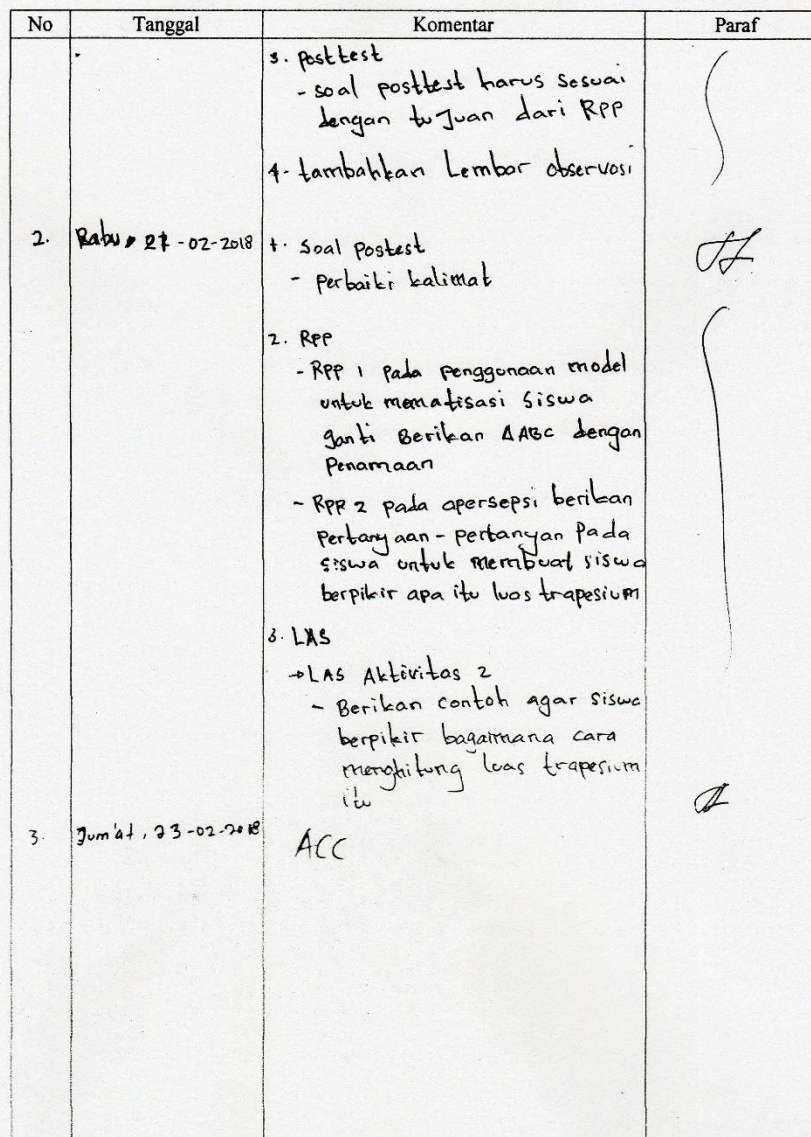 No Tanggal Komentar Paraf
3. posttest
- soal posttest harus sesuai
dengan tujuan dari RPP
4. tambahkan Lembar observasi
2. Rabu, 21-02-2018 1. Soal Postest
- perbaiki kalimat
2. RPP
- RPP 1 pada penggunaan model
untuk mematisasi siswa
ganti Berikan ΔABC dengan
Penamaan
- RPP 2 pada apersepsi berikan
Pertanyaan - pertanyan Pada
siswa untuk membuat siswa
berpikir apa itu luas trapesium
3. LAS
→ LAS Aktivitas 2
- Berikan contoh agar siswa
berpikir bagaimana cara
menghitung luas trapesium
itu
3. Jum'at, 23-02-2018 ACC